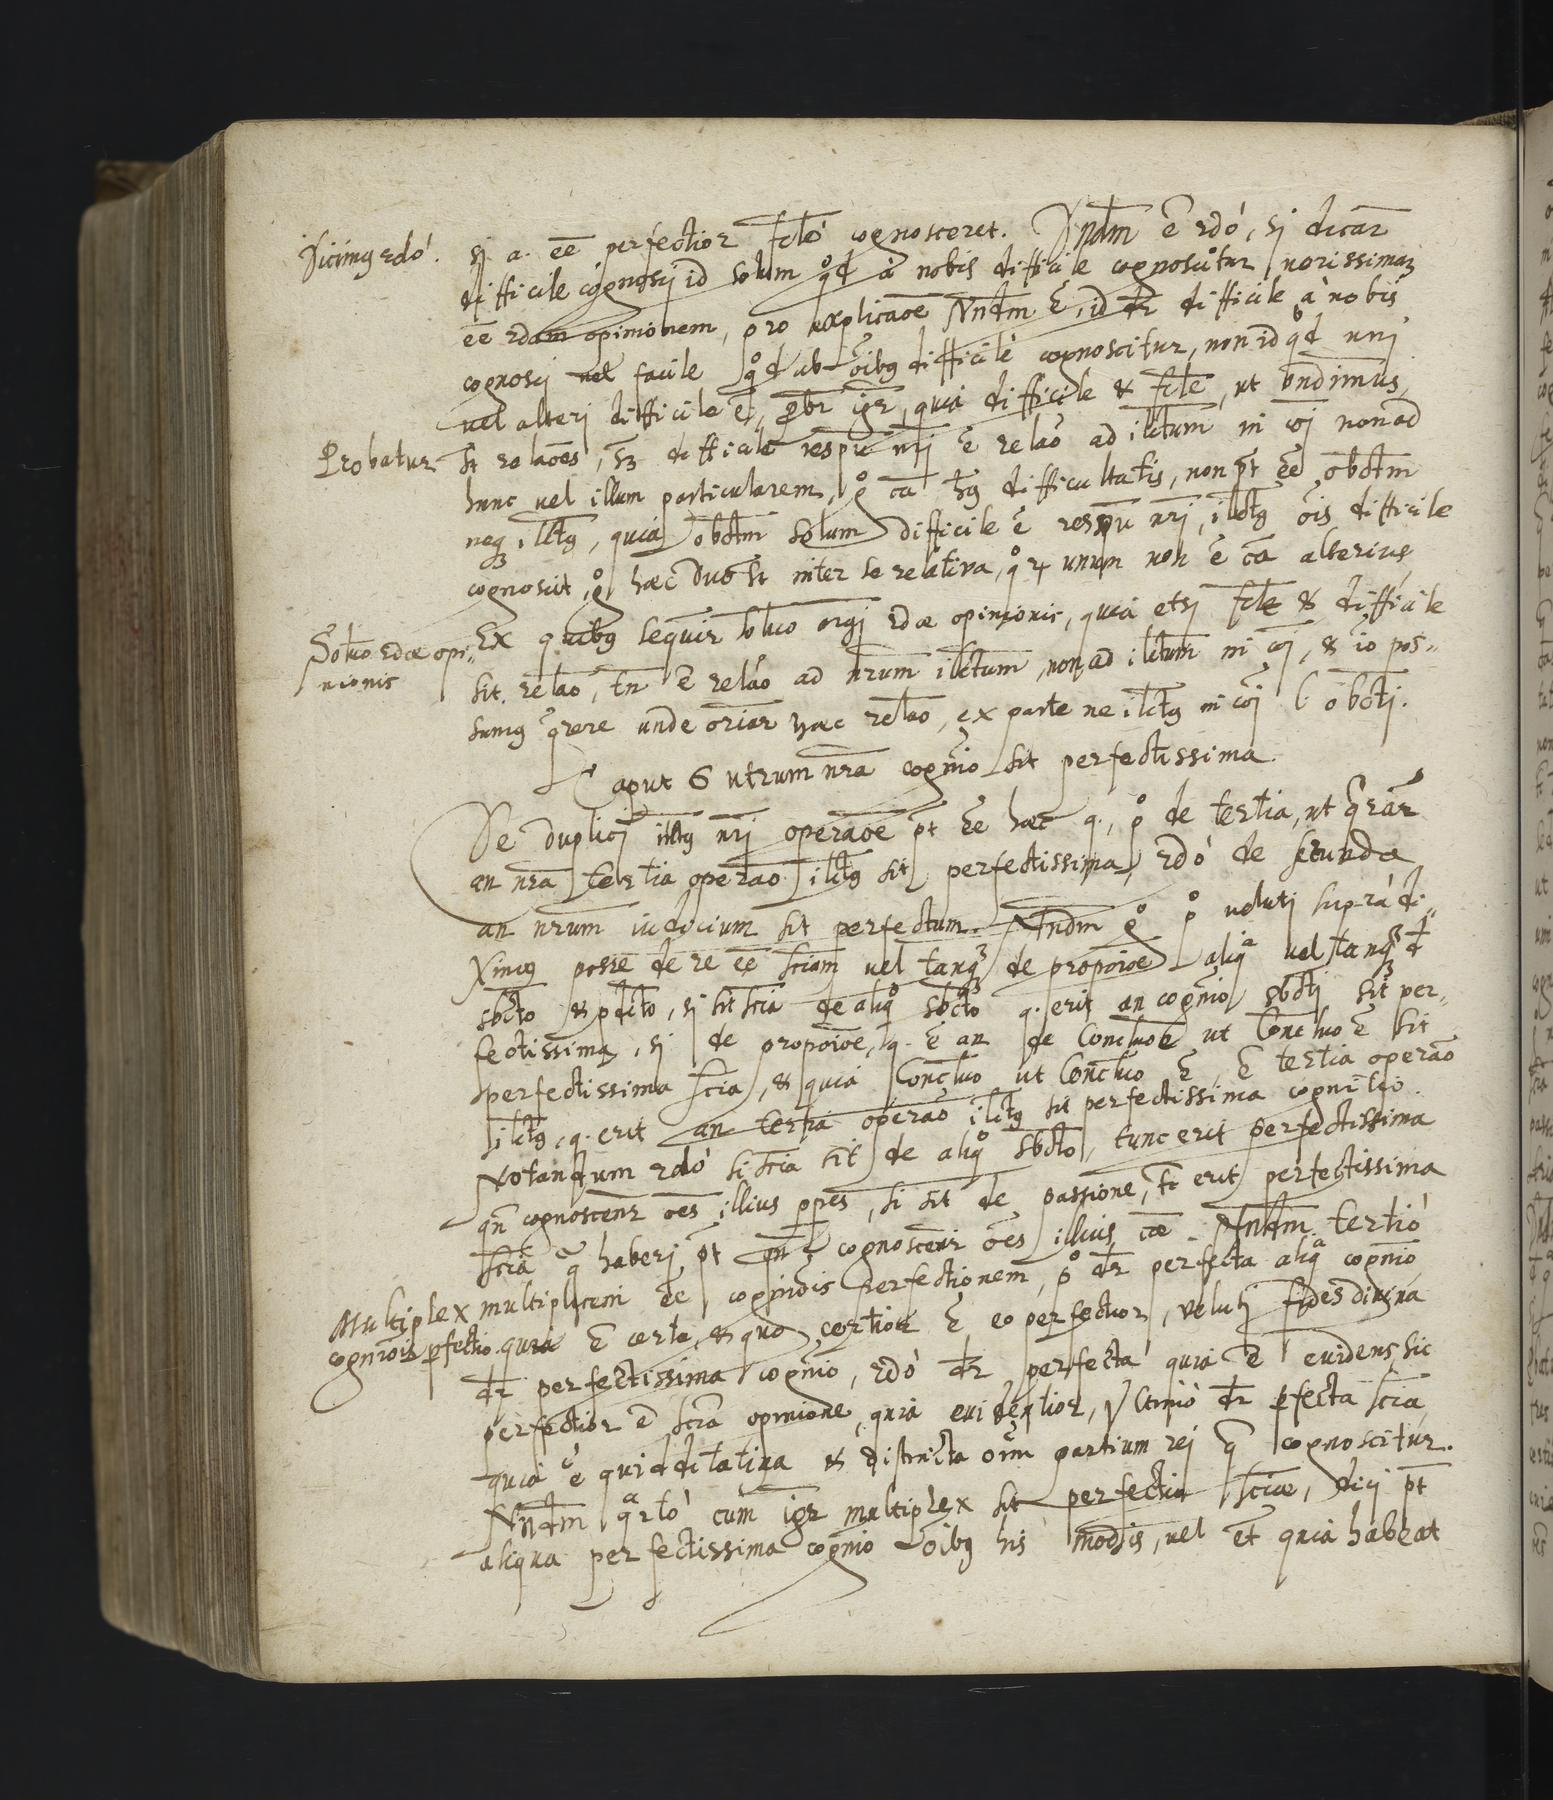 Dicimus 2do.
si a. eē perfectior fcle cognosceret. Dndm̄ ē 2do, si dicar̄
difficile cognosci id solum qd a nobis difficile cognoscitur, verissimaz
eē 2dam opinionem, pro explicaōe Nndm̄ ē, id dr̄ difficile a nobis
cognosci vel facile qd ab oībus difficile cognoscitur, non id qd uni
vel alteri difficile ē, pbr̄ igr̄, quia difficile & fcle, ut ōndimus,
Probatur
st̄ relaōes, sz difficile respū nr̄i ē relaō ad illctum in coī non ad
hunc vel illum particularem, go cā hs difficultatis, non pt̄ eē obctm̄
neqz illcts, quia obctm̄ solum difficile ē respū nr̄i, illcts oīs difficile
cognoscit, go haec duo st̄ inter se relativa, quor unum non ē cā alterius
Ex quibus sequir̄ soluo argi 2dae opinionis, quia etsi fcle & difficile
Solutio 2dae opi-
nionis
sit relaō, tn̄ ē relaō ad nr̄um illctum, non ad illctum in coī, & iō pos-
sumus qrere unde oriar̄ haec relaō, ex parte ne illcts in coī l obcti.
Caput 6 utrum nr̄a cognīo sit perfectissima
De duplici illcts nr̄i operaōe pt̄ eē haec q., po de tertia, ut qrar̄
an nr̄a tertia operaō illcts sit perfectissima, 2do de secunda
an nr̄um iudicium sit perfectum. Nndm̄ go po veluti supra di-
ximus posse de re eē sciam vel tanqz de propōioe aliqa vel tanqz d
sbcto & pdcto, si sit scia de aliqo sbcto q. erit an cognīo sbcti sit per-
fectissima, si de propōioe, q. ē an de Conclusoe ut Concluō ē sit
perfectissima scia, & quia Concluō ut Concluō ē, ē tertia operaō
illcts, q. erit an tertia operaō illcts sit perfectissima cognitio.
Notandum 2do si scia sit de aliqo sbcto, tunc erit perfectissima
qn̄ cognoscenr̄ oēs illius ppes, si sit de passione, tc̄ erit perfectissima
scia q haberi pt̄ qn̄ cognoscenr̄ oēs illius cae. Nndm̄ tertio
Multiplex
cognīois pfectio.
multiplicem eē cognīois perfectionem, po dr̄ perfecta aliqa cognīo
quia ē certa, & quo certior ē, eo perfectior, veluti fides divina
dr̄ perfectissima cognīo, 2do dr̄ perfecta quia ē evidens, sic
perfectior ē scia opinione, quia evidentior, Ultimo dr̄ pfecta scia
quia ē quidditativa & distincta oīm partium rei q cognoscitur.
Nndm̄ qrto cum igr̄ multiplex sit perfectio sciae, dici pt̄
aliqua perfectissima cognīo oībus his modis, vel et̄ quia habeat